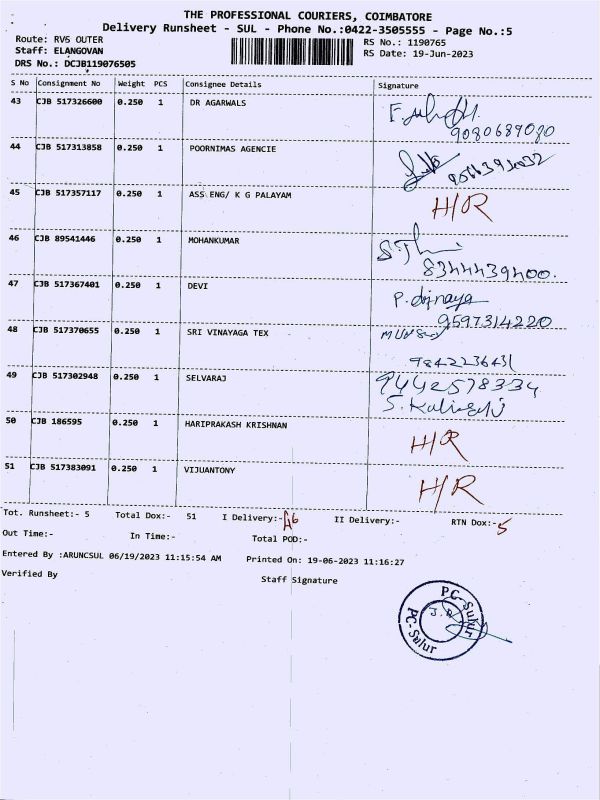 THE PROFESSIONAL COURIERS, COIMBATORE
Delivery Runsheet - SUL - Phone No.:0422-3505555 - Page No.:5
Route: RVS OUTER
RS No.: 1190765
Staff: ELANGOVAN
RS Date: 19-Jun-2023
DRS No.: DCJB119076505
S No Consignment No Weight PCS Consignee Details Signature
43 CJB 517326600 0.250 1 DR AGARWALS
9080689080
44 CJB 517313858 0.250 1 POORNIMAS AGENCIE
45 CJB 517357117 0.250 1 ASS ENG/ K G PALAYAM H/R
46 CJB 89541446 0.250 1 MOHANKUMAR
8344439400.
47 CJB 517367401 0.250 1 DEVI
9597314220
48 CJB 517370655 0.250 1 SRI VINAYAGA TEX
9842236431
49 CJB 517302948 0.250 1 SELVARAJ 9442578334
50 CJB 186595 0.250 1 HARIPRAKASH KRISHNAN H/R
51 CJB 517383091 0.250 1 VIJUANTONY H/R
Tot. Runsheet:- 5 Total Dox:- 51 I Delivery:- 46 II Delivery:- RTN Dox:- 5
Out Time:- In Time:- Total POD:-
Entered By :ARUNCSUL 06/19/2023 11:15:54 AM Printed On: 19-06-2023 11:16:27
Verified By Staff Signature
PC-Sulur
PC-Sulur